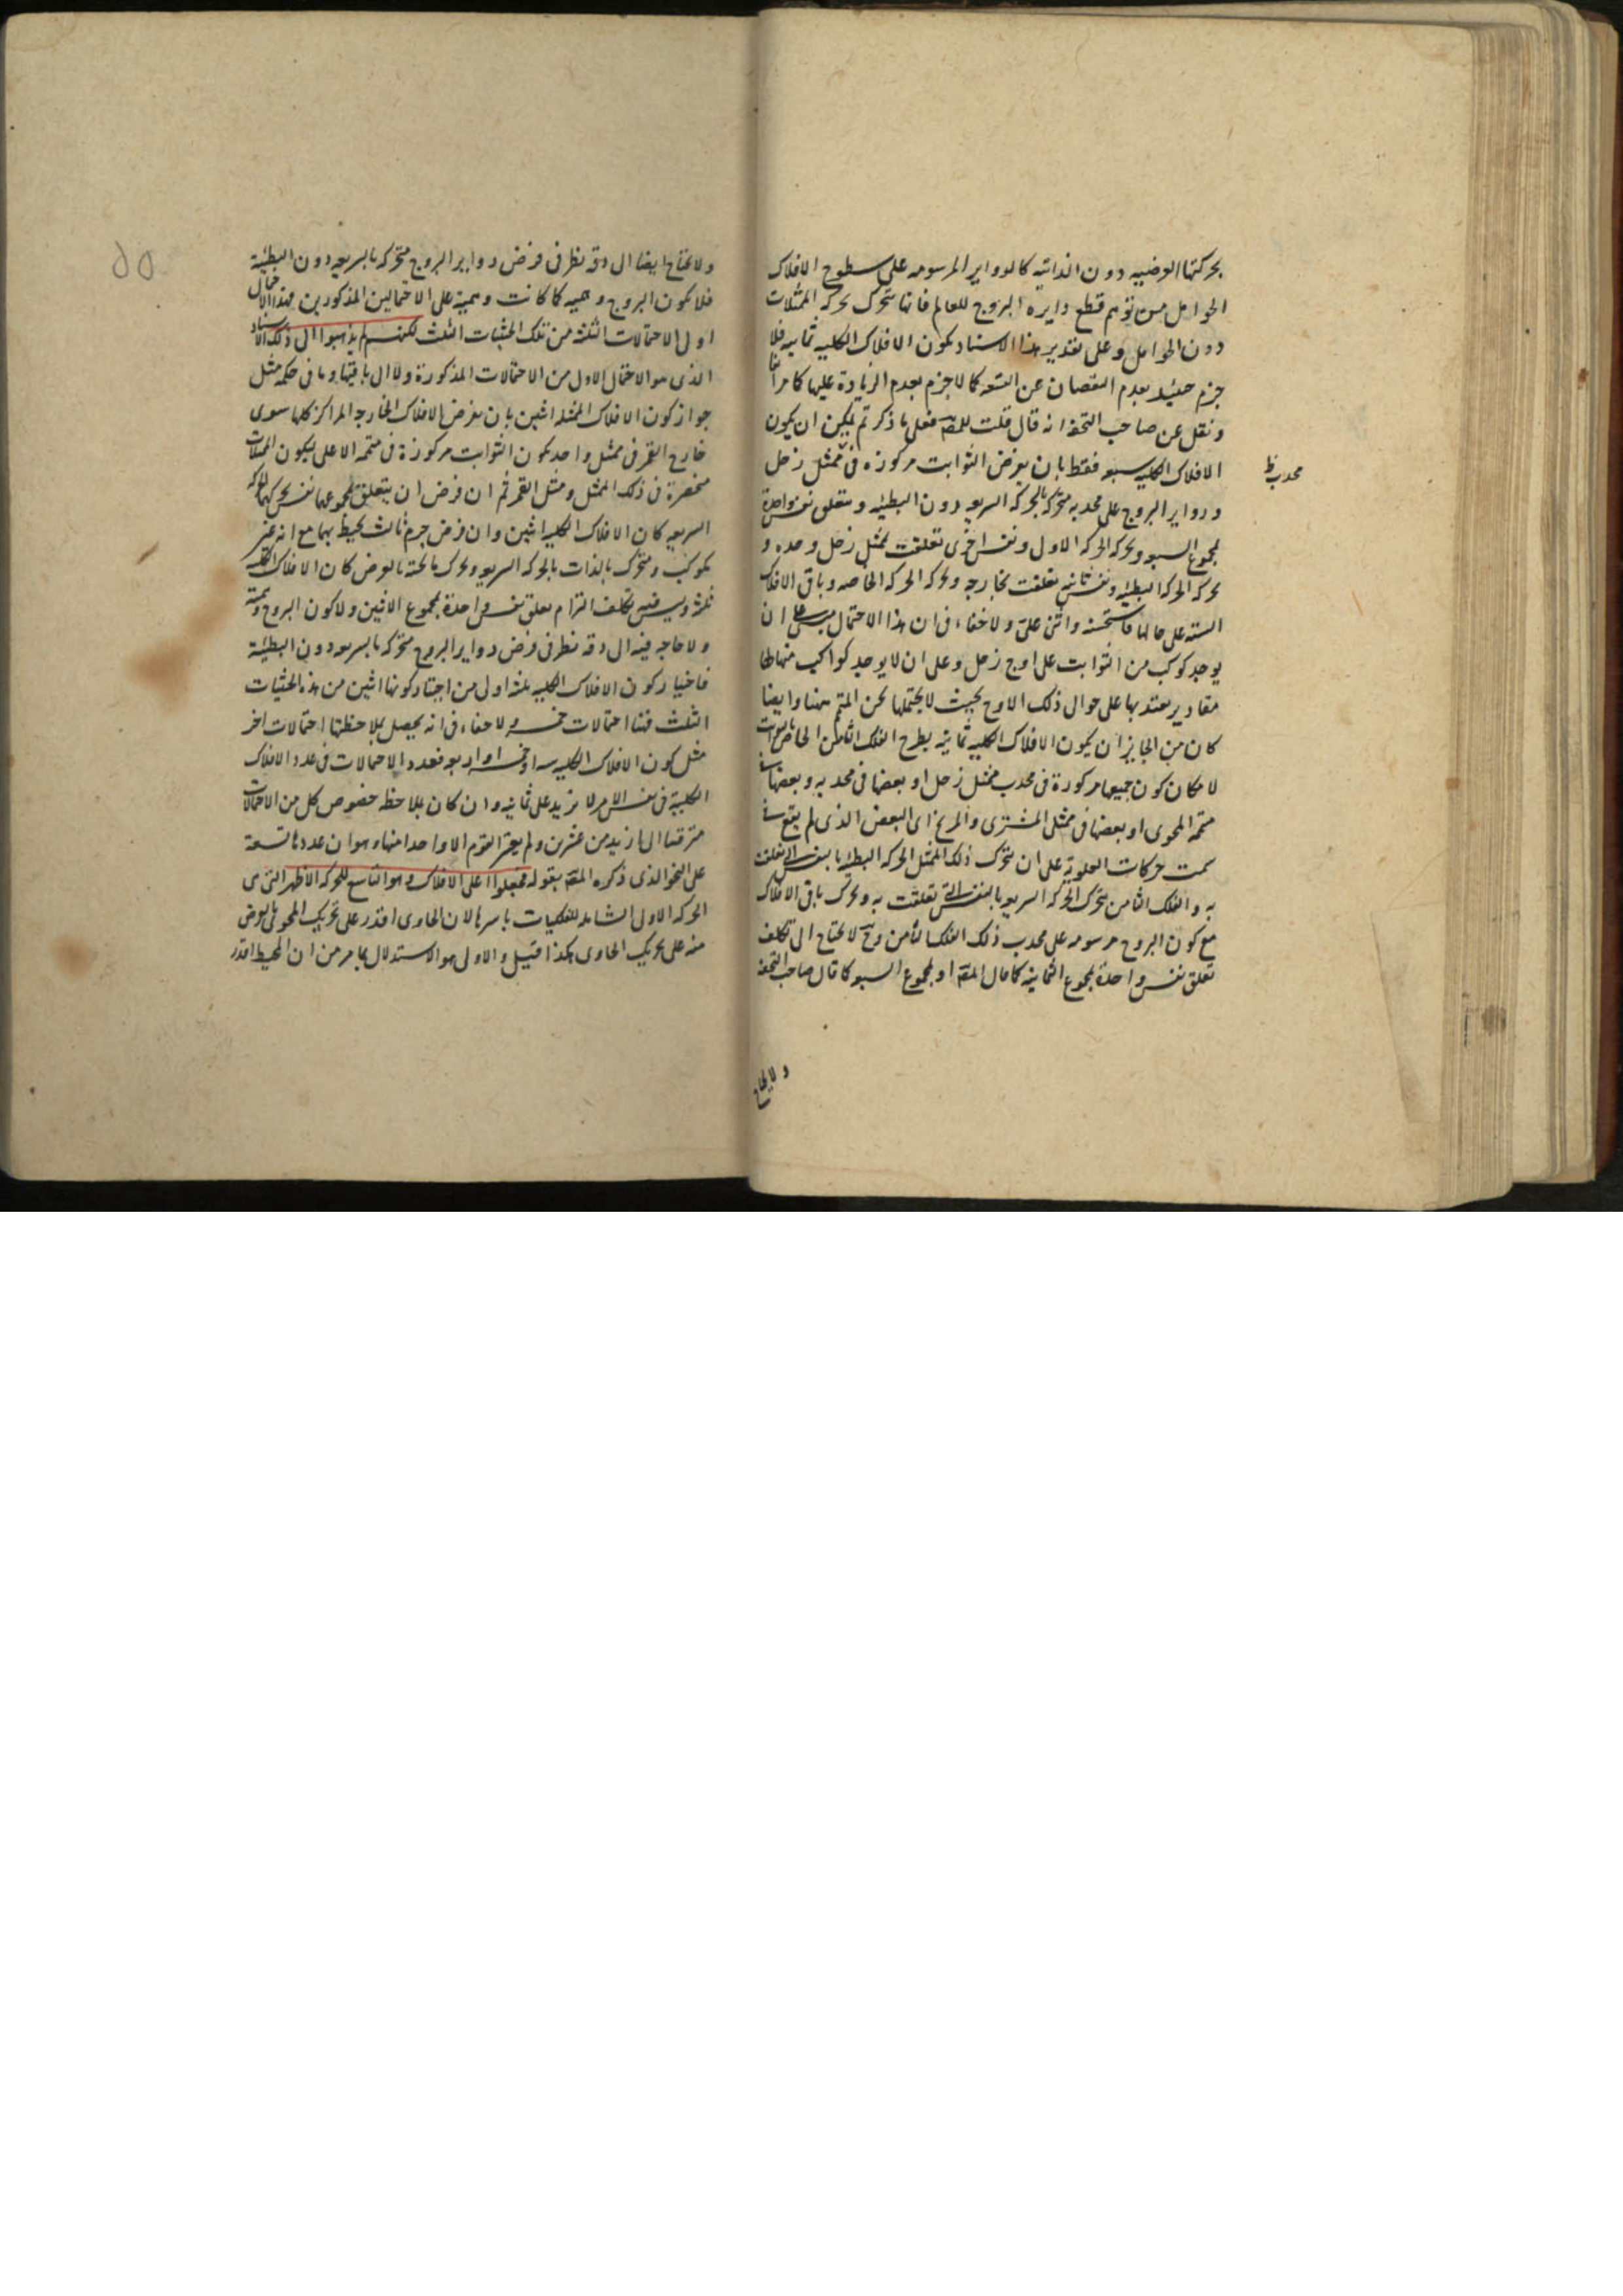 بحركتها العرضيه دون الذاتيه كالدواير المرسومه على سطوح الافلاك
الحوامل من توهم قطع دايره البروج للعالم فانها تتحرك بحركه الممثلات
دون الحوامل وعلى تقدير هذا الاسناد يكون الافلاك الكليه ثمانيه فلا
جزم حينئذ بعدم النقصان عن التسعه كما لا جزم بعدم الزيادة عليها كما مر
ونقل عن صاحب التحفه انه قال قلت للمصـ فعلى ما ذكرتم يمكن ان يكون
الافلاك الكليه سبعه فقط بان يفرض الثوابت مركوزه فى ممثل زحل
محدب ظ
ودواير البروج على محدبه متحركه بالحركه السريعه دون البطيئه ويتعلق نفس واحدة
بمجموع السبعه ويحركه الحركه الاولى ونفس اخرى تعلقت بممثل زحل وحده و
يحركه الحركه البطيئه ونفس ثانيه تعلقت بخارجه ويحركه الحركه الخاصه وباقى الافلاك
السته على حالها فاستحسنه واثنى على ولا خفاء فى ان هذا الاحتمال مبنى على ان
يوجد كوكب من الثوابت على اوج زحل وعلى ان لا يوجد كواكب منها لها
مقادير معتد بها على حوالى ذلك الاوج بحيث لا يحتملها ثخن المتمم هنا وايضا
كان من الجايز ان يكون الافلاك الكليه ثمانيه بطرح الفلك الثامن الخاص بالثوابت
لامكان كون جميعها مركوزة فى محدب ممثل زحل او بعضها فى محدبه وبعضها فى
متممه المحوى او بعضها فى ممثلى المشترى والمريخ اى البعض الذى لم يقع فى
سمت حركات العلوية على ان يتحرك ذلك الممثل الحركه البطيئه بالنفس التى تعلقت
به والفلك الثامن يتحرك الحركه السريعه بالنفس التى تعلقت به ويحرك باقى الافلاك
مع كون البروج مرسومه على محدب ذلك الفلك الثامن وح لا يحتاج الى تكلف
تعلق نفس واحدة بمجموع الثمانيه كما قال المصـ او بمجموع السبعه كما قال صاحب التحفه
ولا يحتاج
ولا يحتاج ايضا الى دقه نظر فى فرض دواير البروج متحركه بالسريعه دون البطيئة
فلا يكون البروج وهميه كما كانت وهمية على الاحتمالين المذكورين فهذا الاحتمال
اولى الاحتمالات الثلثه من تلك الحيثيات الثلث لكنهم لم يذهبوا الى ذلك الاسناد
الذى هو الاحتمال الاول من الاحتمالات المذكورة ولا الى باقيها وما فى حكمه مثل
جواز كون الافلاك الممثله اثنين بان يفرض الافلاك الخارجه المراكز كلها سوى
خارج القمر فى ممثل واحد يكون الثوابت مركوزة فى متممه الاعلى ليكون الممثلات
منحصرة فى ذلك الممثل وممثل القمر ثم ان فرض ان يتعلق بمجموعهما نفس يحركهما الحركه
السريعه كان الافلاك الكليه اثنين وان فرض جرم ثالث يحيط بهما مع انه غير
مكوكب ومتحرك بالذات بالحركه السريعه ويحرك ما تحته بالعرض كان الافلاك الكليه
ثلثه وليس فيه تكلف التزام تعلق نفس واحدة بمجموع الاثنين ولا كون البروج وهمية
ولا حاجه فيه الى دقه نظر فى فرض دواير البروج متحركه بالسريعه دون البطيئة
فاختيار كون الافلاك الكليه ثلثه اولى من اختيار كونها اثنين من هذه الحيثيات
الثلث فهنا احتمالات خمسه ولا خفاء فى انه يحصل بملاحظتها احتمالات اخر
مثل كون الافلاك الكليه سته او خمسه او اربعه فعدد الاحتمالات فى عدد الافلاك
الكلية فى نفس الامر لا يزيد على ثمانيه وان كان بملاحظه خصوص كل من الاحتمالات
مترقيا الى ازيد من عشرين ولم يعتبر القوم الا واحدا منها وهو ان عددها تسعة
على النحو الذى ذكره المصـ بقوله فجعلوا اعلى الافلاك وهو التاسع للحركه الاظهر التى هى
الحركه الاولى الشامله للفلكيات باسرها لان الحاوى اقدر على تحريك المحوى بالعرض
منه على تحريك الحاوى هكذا قيل والاولى هو الاستدلال بما مر من ان المحيط اقدر